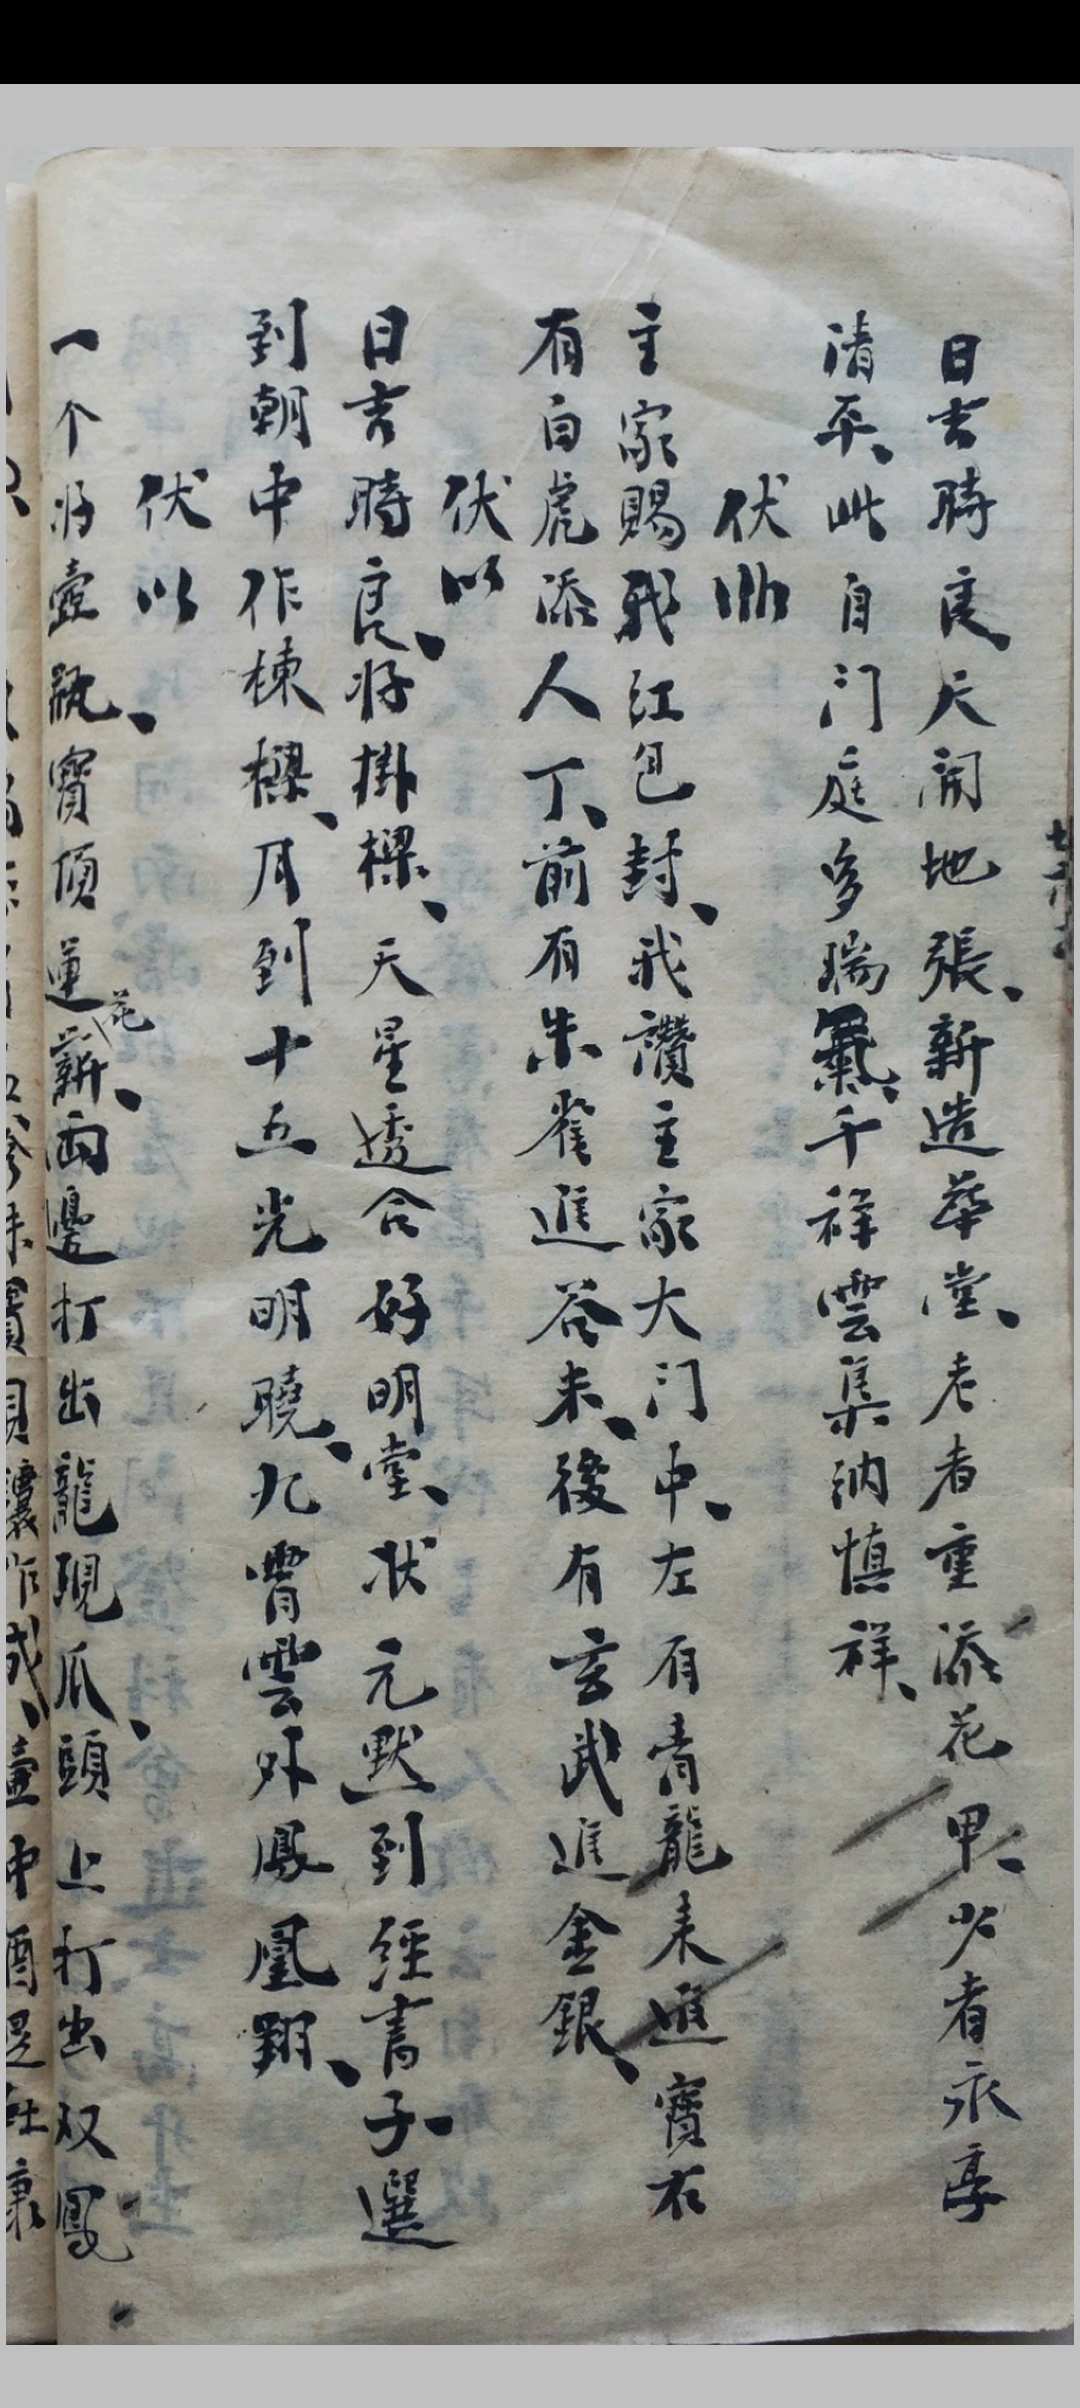 日吉時良、天開地張、新造華堂、老者重添花甲、少者永享
清平、此自门庭多瑞氣、千祥雲集納慎祥、
伏
主家賜我江包封、我讚主家大门中、左有青龍来進寶右
有白虎添人丁、前有朱雀進谷米、後有玄武進金銀、
伏以
日吉時良、将掛樑、天星透合好明堂、状元默到經書子選
到朝中作棟樑、月到十五光明曉、九霄雲外鳳凰翔、
伏以
一个将壺瓶、寶頂蓮花薪、两邊打出龍現爪、頭上打出双鳳